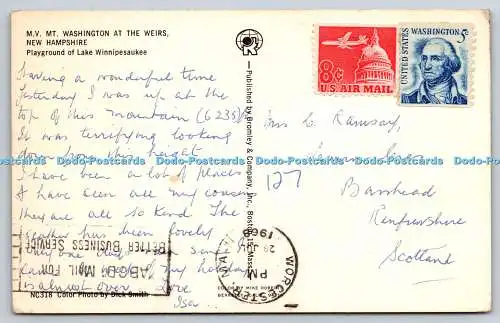 M.V. MT. WASHINGTON AT THE WEIRS,
NEW HAMPSHIRE
Playground of Lake Winnipesaukee
Having a wonderful time
Yesterday I was up at the
top of this mountain (6238ft)
It was terrifying looking
down from this height
I have been a lot of places
I have seen all my cousins
They are all so kind. The
weather has been lovely
only one day
my holiday
is almost over Love
Isa
NC318 Color Photo by Dick Smith
Published by Bromley & Company, Inc., Boston, Mass.
COLOR BY MIKE ROBERTS
8¢
U.S. AIR MAIL
UNITED STATES
WASHINGTON 5¢
Mrs C. Ramsay,
Barrhead
Renfrewshire
Scotland
127
WORCESTER
PM
29
1968
ABCD MAIL FOR
BETTER BUSINESS SERVICE
Dodo-Postcards Dodo-Postcards Dodo-Postcards Dodo-Postcards Dodo-Postcards Dodo-Postcards